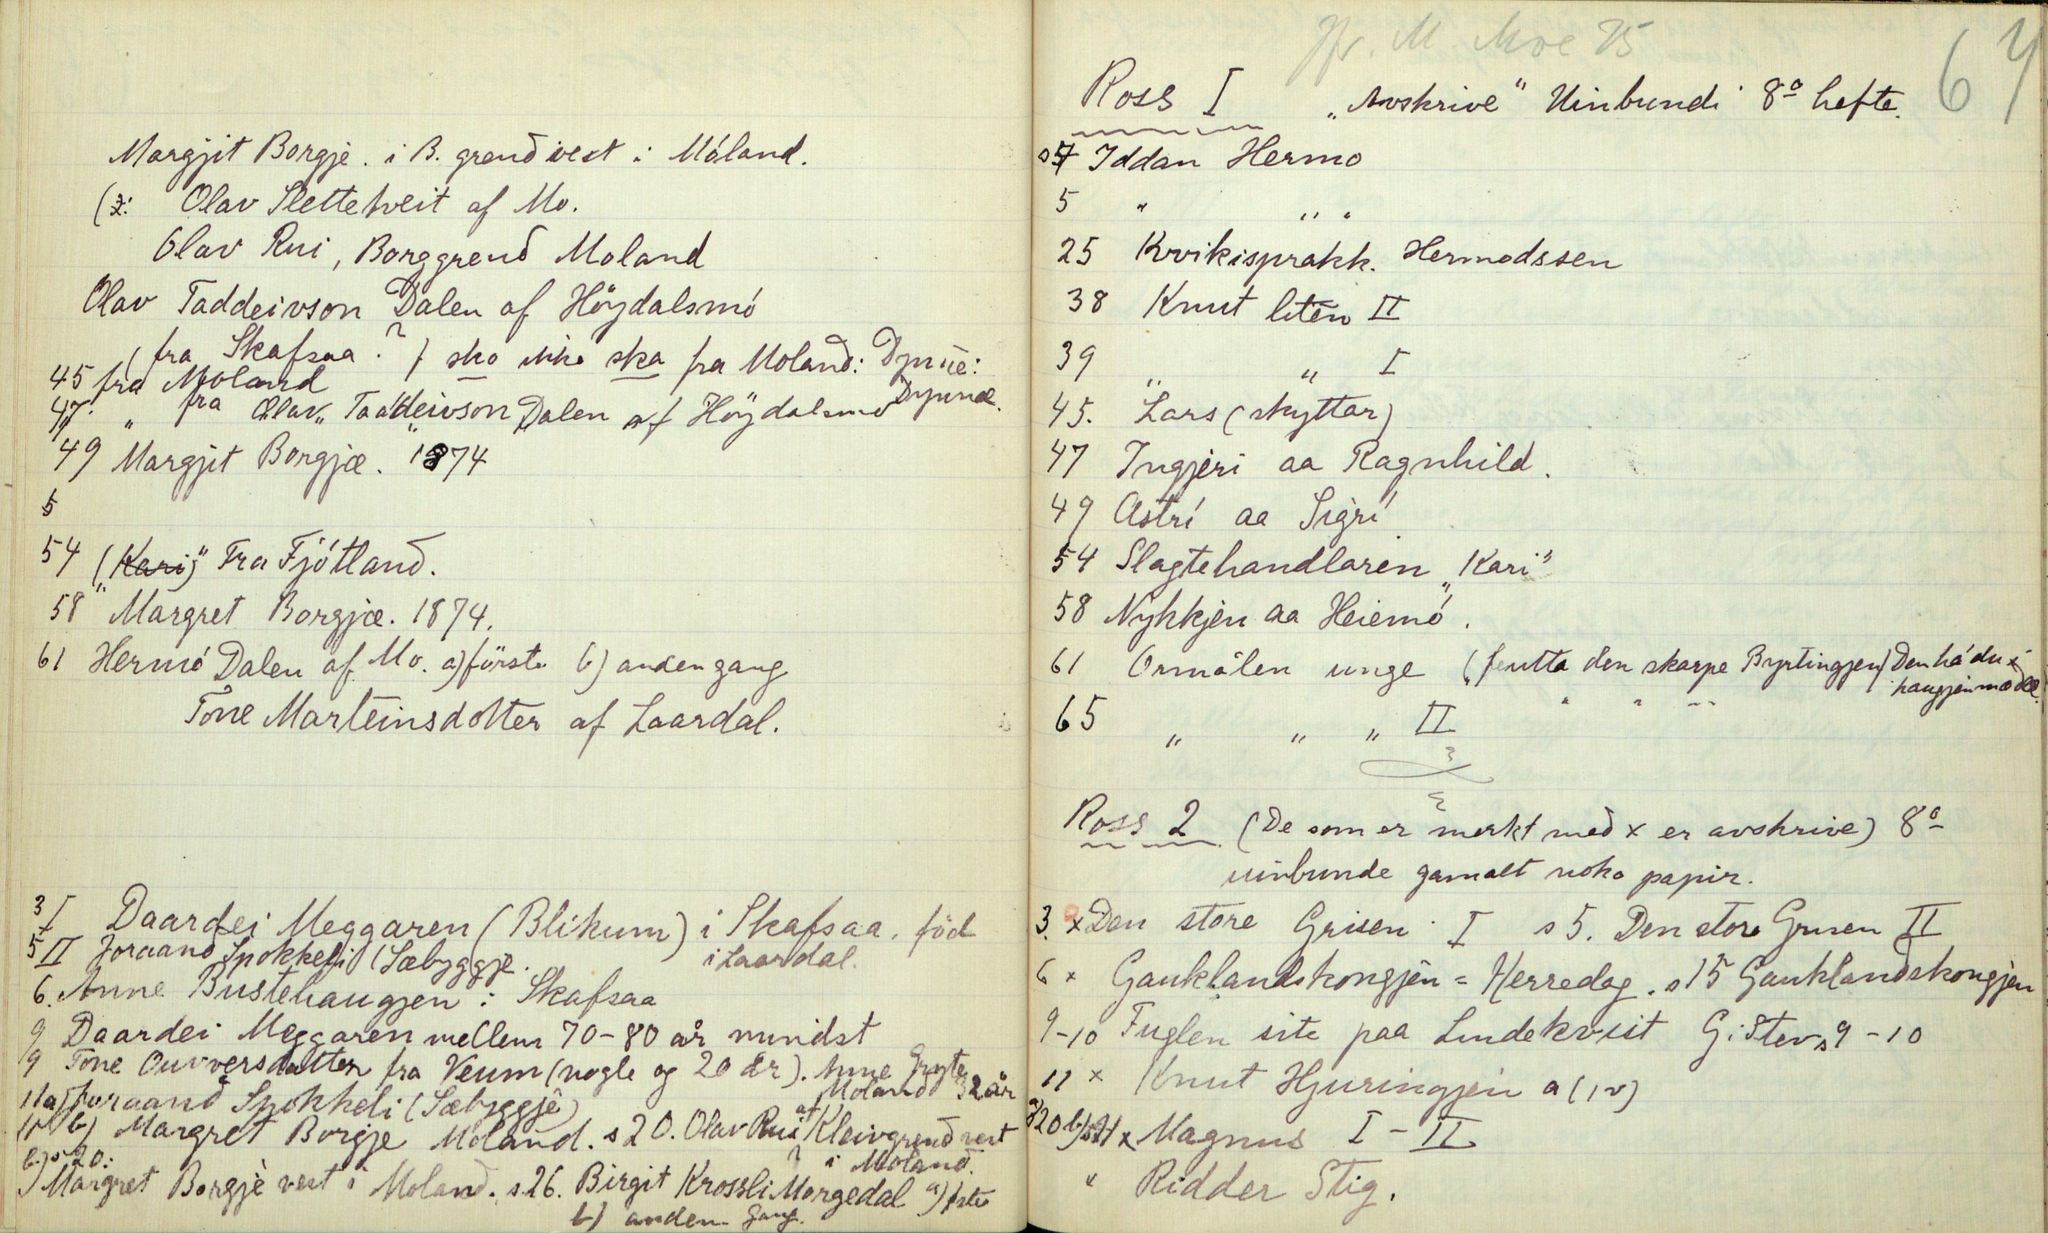 Margjit Borgje. i B. grend vest i Móland.
(z: Olav Sletteheit af Mo.
Olav Rui, Borggrend Moland
Olav Taddeivson Dalen af Höydalsmó
(fra Skafsaa ? ) sko ikke ska fra Moland: Dynne:
45 fra Moland Dynnæ.
47. " fra Olav Taddeivson Dalen af Höydalsmo
49 Margjit Borgjæ. 1874
5
54 ("Kari)" Fra Fjótland.
58 " Margret Borgjæ. 1874.
61 Hermó Dalen af Mo. a) förste b) anden gang
Tone Marteinsdotter af Laardal.
3 I Daardei Meggaren (Blikum) i Skafsaa. föd
5 II Joraand Spokkeli (Sæbyggje. i Laardal.
6. Anne Bustehaugjen i Skafsaa
9 Daardei Meggaren mellem 70-80 år mindst
9 Tone Ouvversdatter fra Veum (nogle og 20 år). Anne
Moland 32 år
11 a) Joraand Spokkeli (Sæbyggje)
b) Margret Borgje Moland. s 20. Olav Rui af Kleivgrend vest
b) s 20: i Moland.
Margret Borgje vest i Moland. s. 26. Birgit Krossli Morgedal a) fste
b) anden gang.
Jfr. M. Moe 75
64
Ross I "Avskrive" Uinbundi 8º hefte.
s 4 Iddan Hermo
5 " " "
25 Kvikisprakk. Hermodssen
38 Knut liten II
39 " " I
45. Lars (skyttar)
47 Ingjeri aa Ragnhild.
49 Astri aa Sigri
54 Slagtehandlaren "Kari"
58 Nykkjen aa Heiemó.
61 Ormålen unge (feutta den skarpe Byrtingjen) Den há du i
haugjen mædæ.
65 " " " II
Ross 2 (De som er merkt med x er avskrive) 8º
uinbunde gamalt noko papir.
3. x Den store Grisen I s 5. Den store Grisen II
6 x Gauklandskongjen = Herredag. s 15 Gauklandskongjen
9-10 Fuglen site paa Lindekvist G. Stev s 9-10
11 x Knut Hjuringjen a (1v)
a) 20 b) s 21 x Magnus I-II
" Ridder Stig.